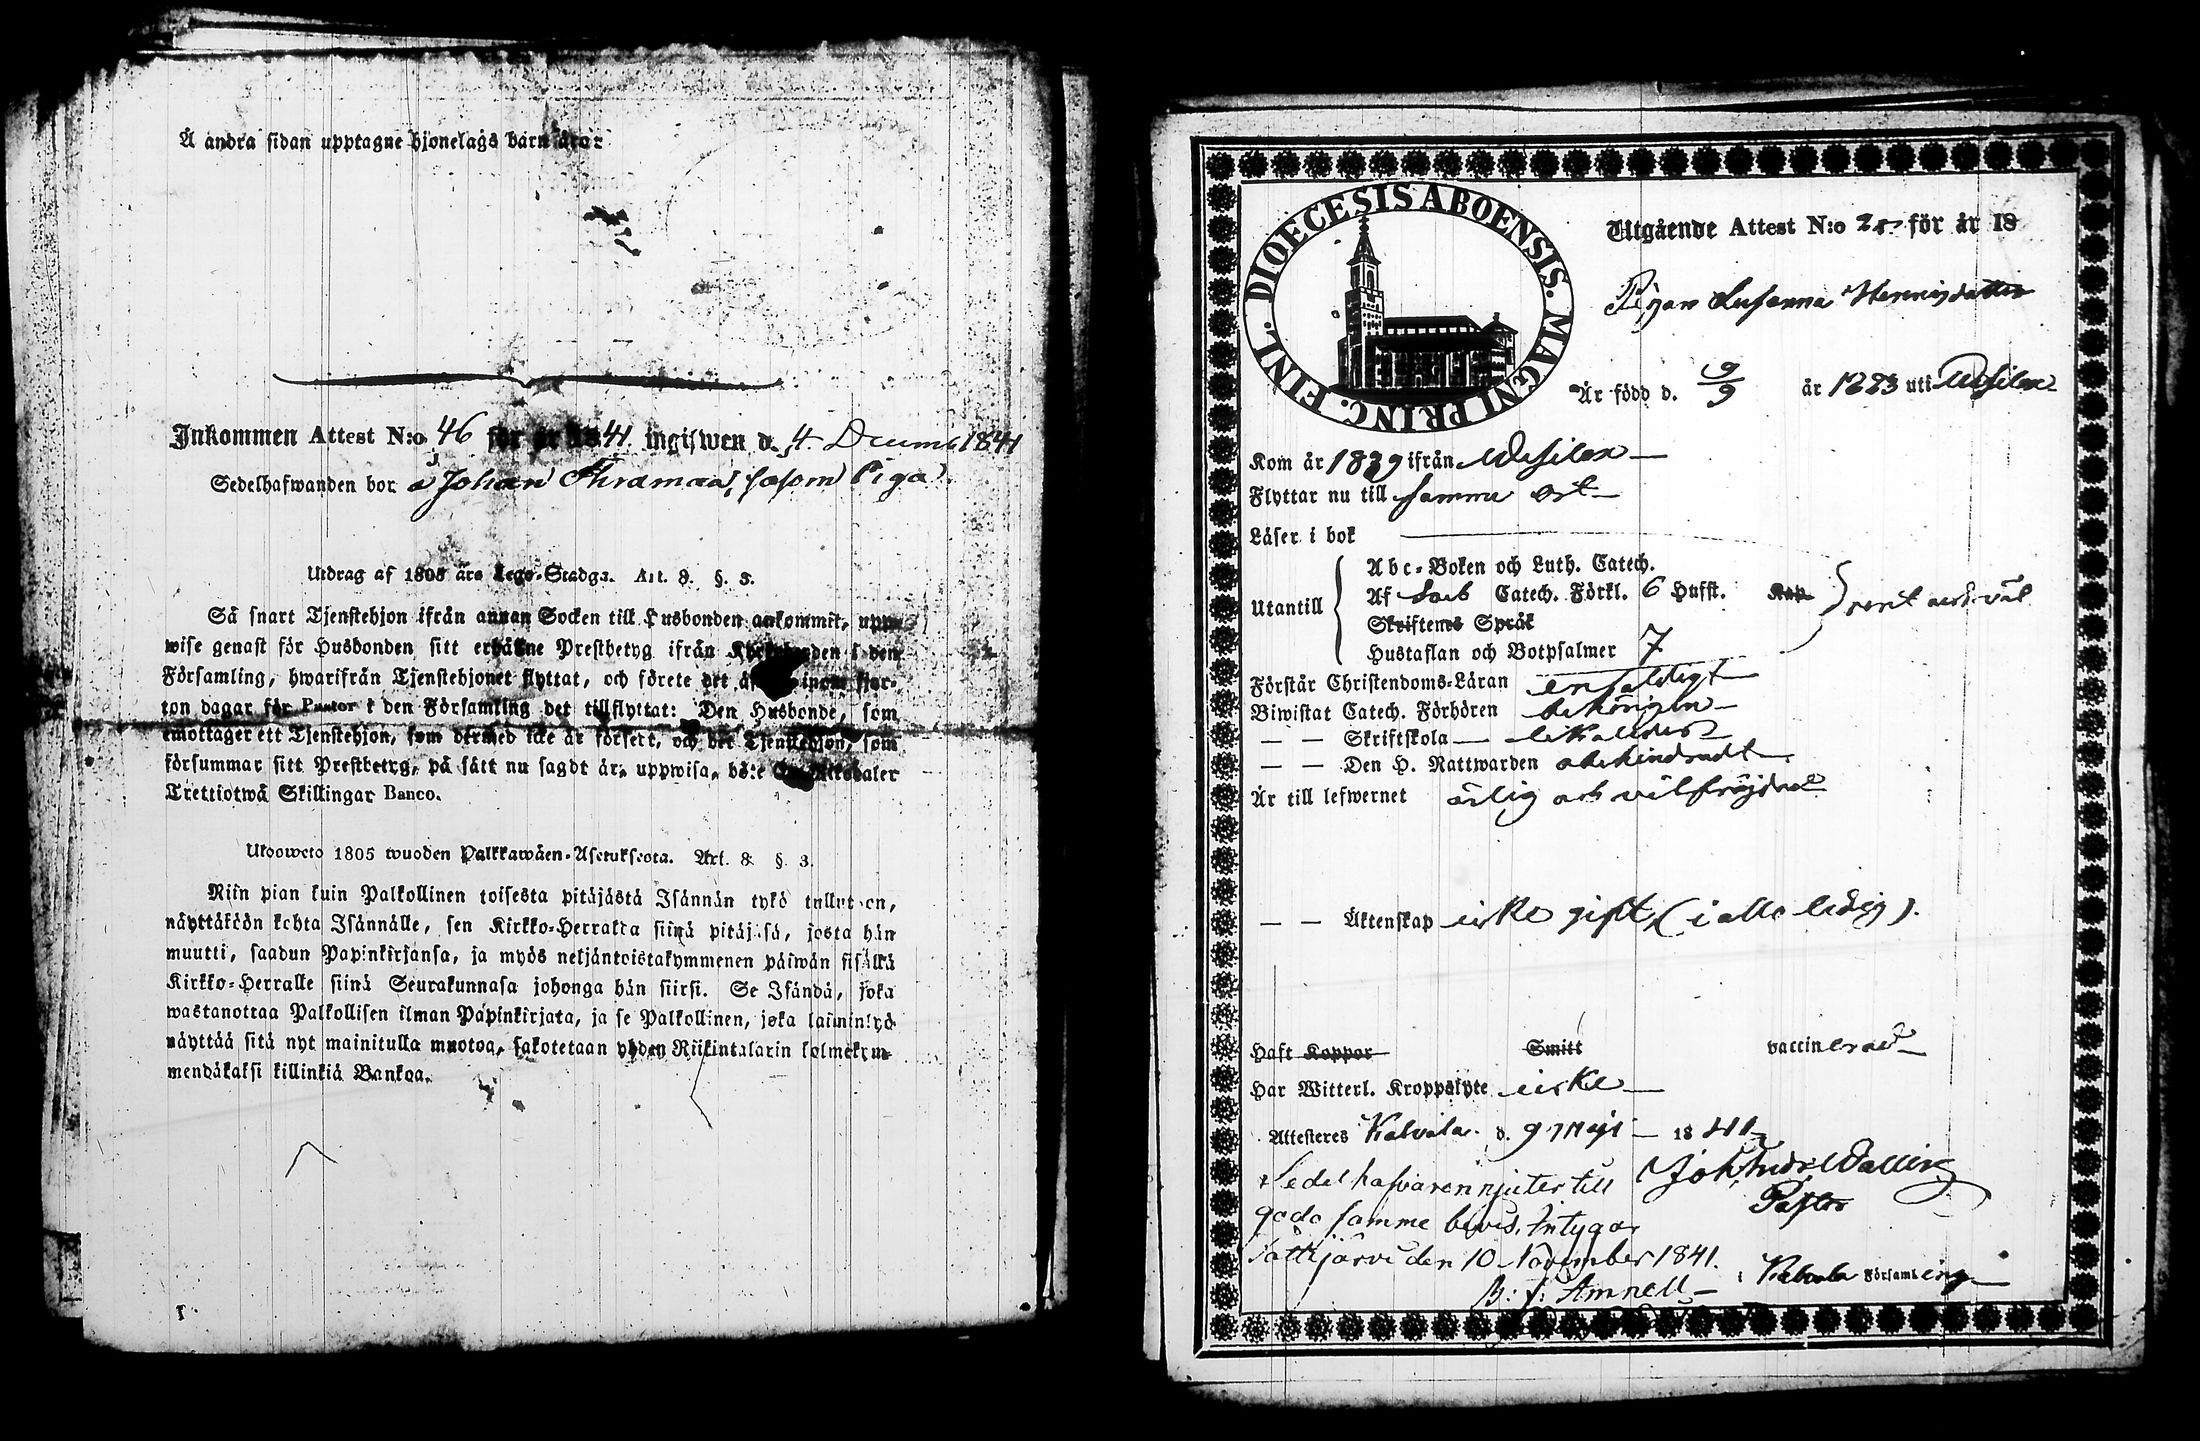 Å andra sidan upptagne hjonelags barn äro:
Inkommen Attest N:o 46 för år 1841 ingifwen d. 4 Decemb 1841
Sedelhafwanden bor å Johan Thramaa, såsom Piga.
Utdrag af 1805 års Lego-Stadga. Art. 8. §. 3.
Så snart Tjenstehjon ifrån annan Socken till Husbonden ankommit, upp-
wise genast för Husbonden sitt erhållne Prestbetyg ifrån Kyrkoherden i den
Församling, hwarifrån Tjenstehjonet flyttat, och förete det inom fjor-
ton dagar för Pastor i den Församling det tillflyttat: Den Husbonde, som
emottager ett Tjenstehjon, som dermed icke är försett, och det Tjenstehjon, som
försummar sitt Prestbetyg, på sätt nu sagdt är, uppwisa, böte En Riksdaler
Trettiotwå Skillingar Banco.
Ulosweto 1805 wuoden Palkkawäen-Asetuksesta. Art. 8 §. 3.
Niin pian kuin Palkollinen toisesta pitäjästä Isännän tykö tullut on,
näyttäköön kohta Isännälle, sen Kirkko-Herralta siinä pitäjäsä, josta hän
muutti, saadun Papinkirjansa, ja myös neljäntoistakymmenen päiwän sisällä
Kirkko-Herralle siinä Seurakunnasa johonga hän siirsi. Se Isändä, joka
wastanottaa Palkollisen ilman Papinkirjata, ja se Palkollinen, joka laiminlyö
näyttää sitä nyt mainitulla muotoa, sakotetaan yhden Riikintalarin kolmekym-
mendäkaksi killinkiä Bankoa.
DIOECESIS ABOENSIS. MAGNI PRINC. FINL.
Utgående Attest N:o 25 för år 18
Pigan Susanna Henrigsdatter
Är född d. 9/9 år 1823 uti Wesilax
Kom år 1839 ifrån Wesilax
Flyttar nu till samma ort
Läser i bok
Utantill
Abc-Boken och Luth. Catech.
Af Catech. Förkl. 6 Hufst. Kap.
Skriftenes Språk
Hustaflan och Botpsalmer 7
rent och väl
Förstår Christendoms-Läran enfaldigt
Biwistat Catech. Förhören behörigen
— — Skriftskola
— — Den H. Nattwarden obehindradt
Är till lefwernet ärlig och välfrejdad
— — Äktenskap icke gift (i allo ledig).
Haft Koppor Smitt vaccinerad
Har Witterl. Kroppslyte icke
Attesteres Kalvola d. 9 Maji 1841
Joh. Walling
Pastor
i Kalvola Församling
Sedelhafvaren njuter till
godo samme bevis. Intygar
Tottijärvi den 10 November 1841.
Amnell